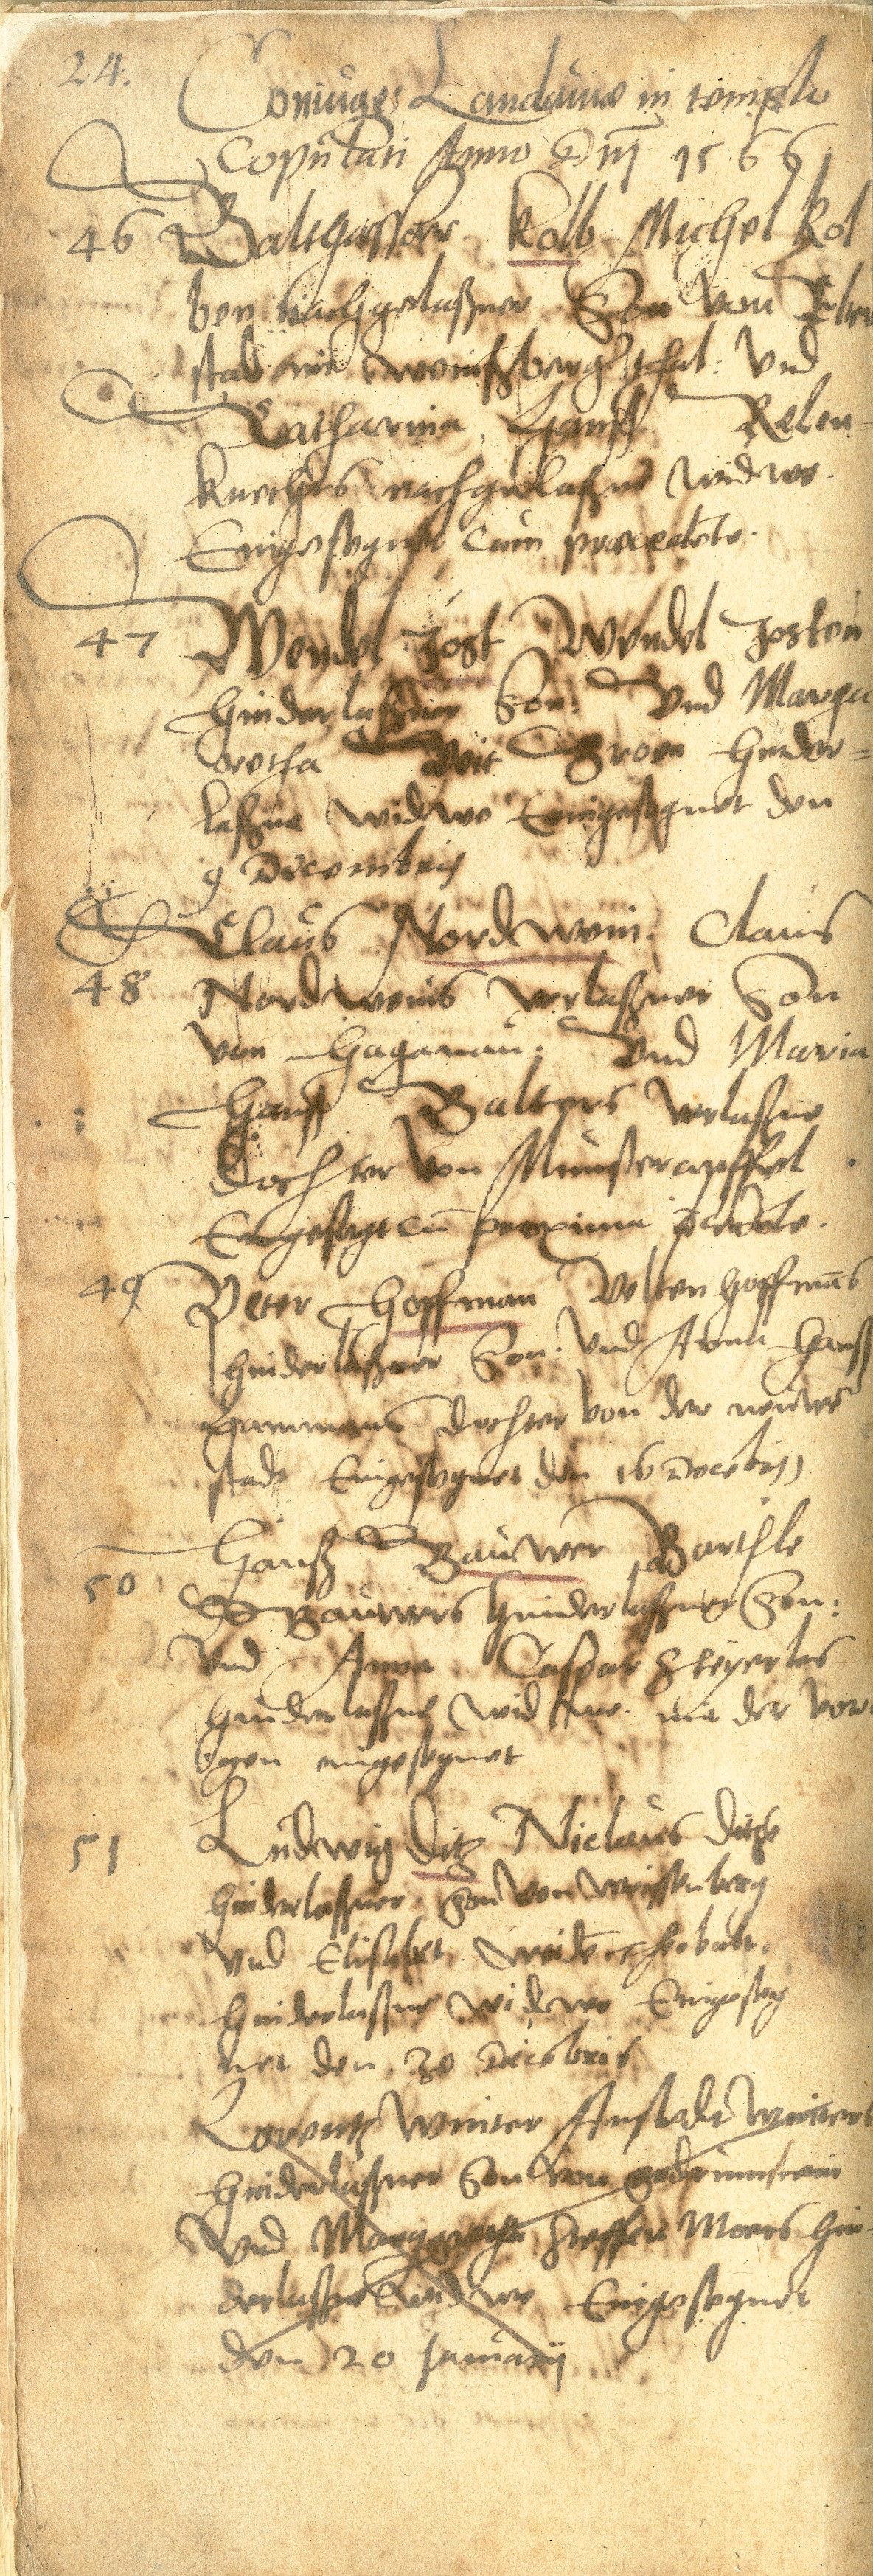 24.
Coniuges Landauiae in templo
Copulati Anno Dni 1566
46 Balthassar Kolb Michel Kol
ben nachgelaßner Son von
stad im Weinsberger thal: Vnd
Catharina Hans Relen-
knechts nachgelaßne widwe.
Eingesegnet cum praecedente.
47 Wendel Jost Wendel Josten
hinderlaßner Son: Vnd Marga
retha Veit hinder=
laßne widwe Eingesegnet den
9 Decembris
Claus Nordwein. Claus
48 Nordweins verlaßner Son
von Hagenau: Vnd Maria
Hans Balters verlaßne
Dochter von Munsterapffel
Eingesegt cu proxima
49 Peter Hoffman Velten Hoffmas
hinderlaßner Son: Vnd Anna Hanß
dochter von der neuwe
stadt Eingesegnet den 16 Decebris
50 Hanß Bauwer Barthle
Bauwers hinderlaßner Son:
Vnd Anna Caspar Steyerles
hinderlaßne widwe. mit der vor
gen eingesegnet
51 Ludwig Ditz Niclaus Ditze
hinderlaßner Son von Weissenberg
Vnd Elisabet
hinderlaßne widwe Eingeseg
net den 30 Decebris
Lorentz Winter Anstadt Winters
hinderlaßner Son von
Vnd Margretha Steffen Moers hin-
derlaßne widwe Eingesegnet
den 20 Januarij